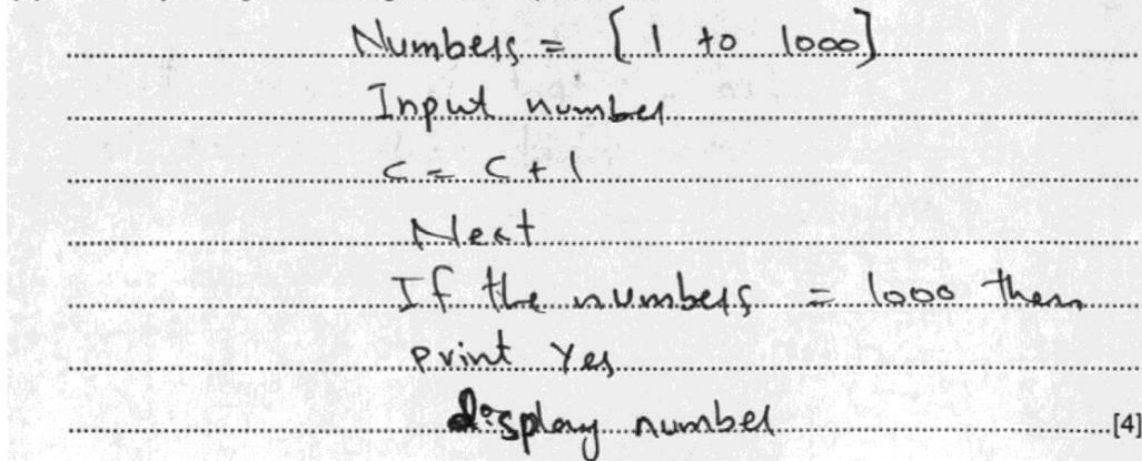 Numbers = [1 to 1000]
Input number
c = c + 1
Next
If the numbers = 1000 then
print Yes
display number
[4]